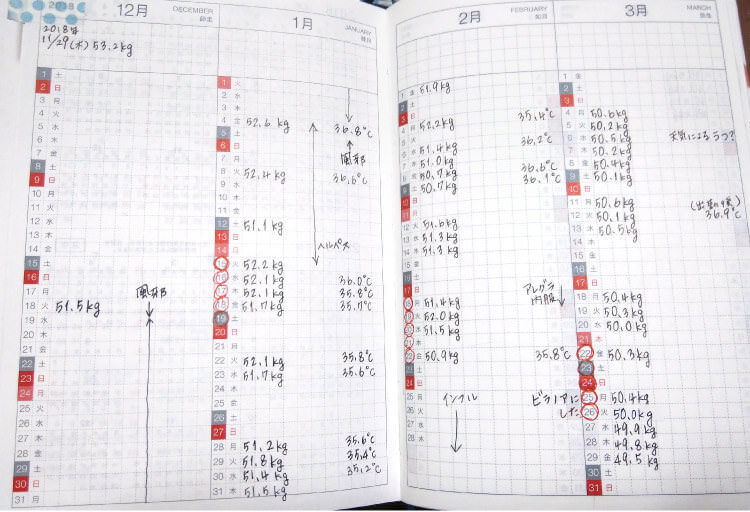 2018
12月
DECEMBER
師走
2018年
11/29(木) 53.2kg
1 土
2 日
3 月
4 火
5 水
6 木
7 金
8 土
9 日
10 月
11 火
12 水
13 木
14 金
15 土
16 日
17 月
18 火 51.5kg
風邪
19 水
20 木
21 金
22 土
23 日
24 月
25 火
26 水
27 木
28 金
29 土
30 日
31 月
1月
JANUARY
睦月
1 火
2 水
3 木
4 金 52.6kg
5 土 36.8℃
6 日
風邪
7 月
8 火 52.4kg 36.6℃
9 水
10 木
11 金
12 土 51.1kg
13 日
14 月
ヘルペス
15 火 52.2kg
16 水 52.1kg 36.0℃
17 木 52.1kg 35.8℃
18 金 51.7kg 35.7℃
19 土
20 日
21 月
22 火 52.1kg 35.8℃
23 水 51.7kg 35.6℃
24 木
25 金
26 土
27 日
28 月 51.2kg 35.6℃
29 火 51.8kg 35.4℃
30 水 51.4kg 35.2℃
31 木 51.5kg
2月
FEBRUARY
如月
1 金 51.9kg
2 土
3 日
4 月 52.2kg 35.4℃
5 火
6 水 51.4kg 36.2℃
7 木 51.0kg
8 金 50.7kg 36.6℃
9 土 50.7kg 36.1℃
10 日
11 月
12 火 51.6kg
13 水 51.3kg
14 木 51.3kg
15 金
16 土
17 日
アレグラ
内服
18 月 51.4kg
19 火 52.0kg
20 水 51.5kg
21 木
22 金 50.9kg 35.8℃
23 土
24 日
25 月 インフル
26 火
27 水
28 木
3月
MARCH
弥生
1 金
2 土
3 日
4 月 50.6kg
5 火 50.2kg
6 水 50.5kg 天気によるうつ?
7 木 50.2kg
8 金 50.4kg
9 土 50.1kg
10 日
11 月 50.6kg
12 火 50.1kg 36.9℃
13 水 50.5kg
14 木
15 金
16 土
17 日
18 月 50.4kg
19 火 50.3kg
20 水 50.0kg
21 木
22 金 50.3kg
23 土
24 日
ビラノアに
した
25 月 50.4kg
26 火 50.0kg
27 水 49.9kg
28 木 49.8kg
29 金 49.5kg
30 土
31 日